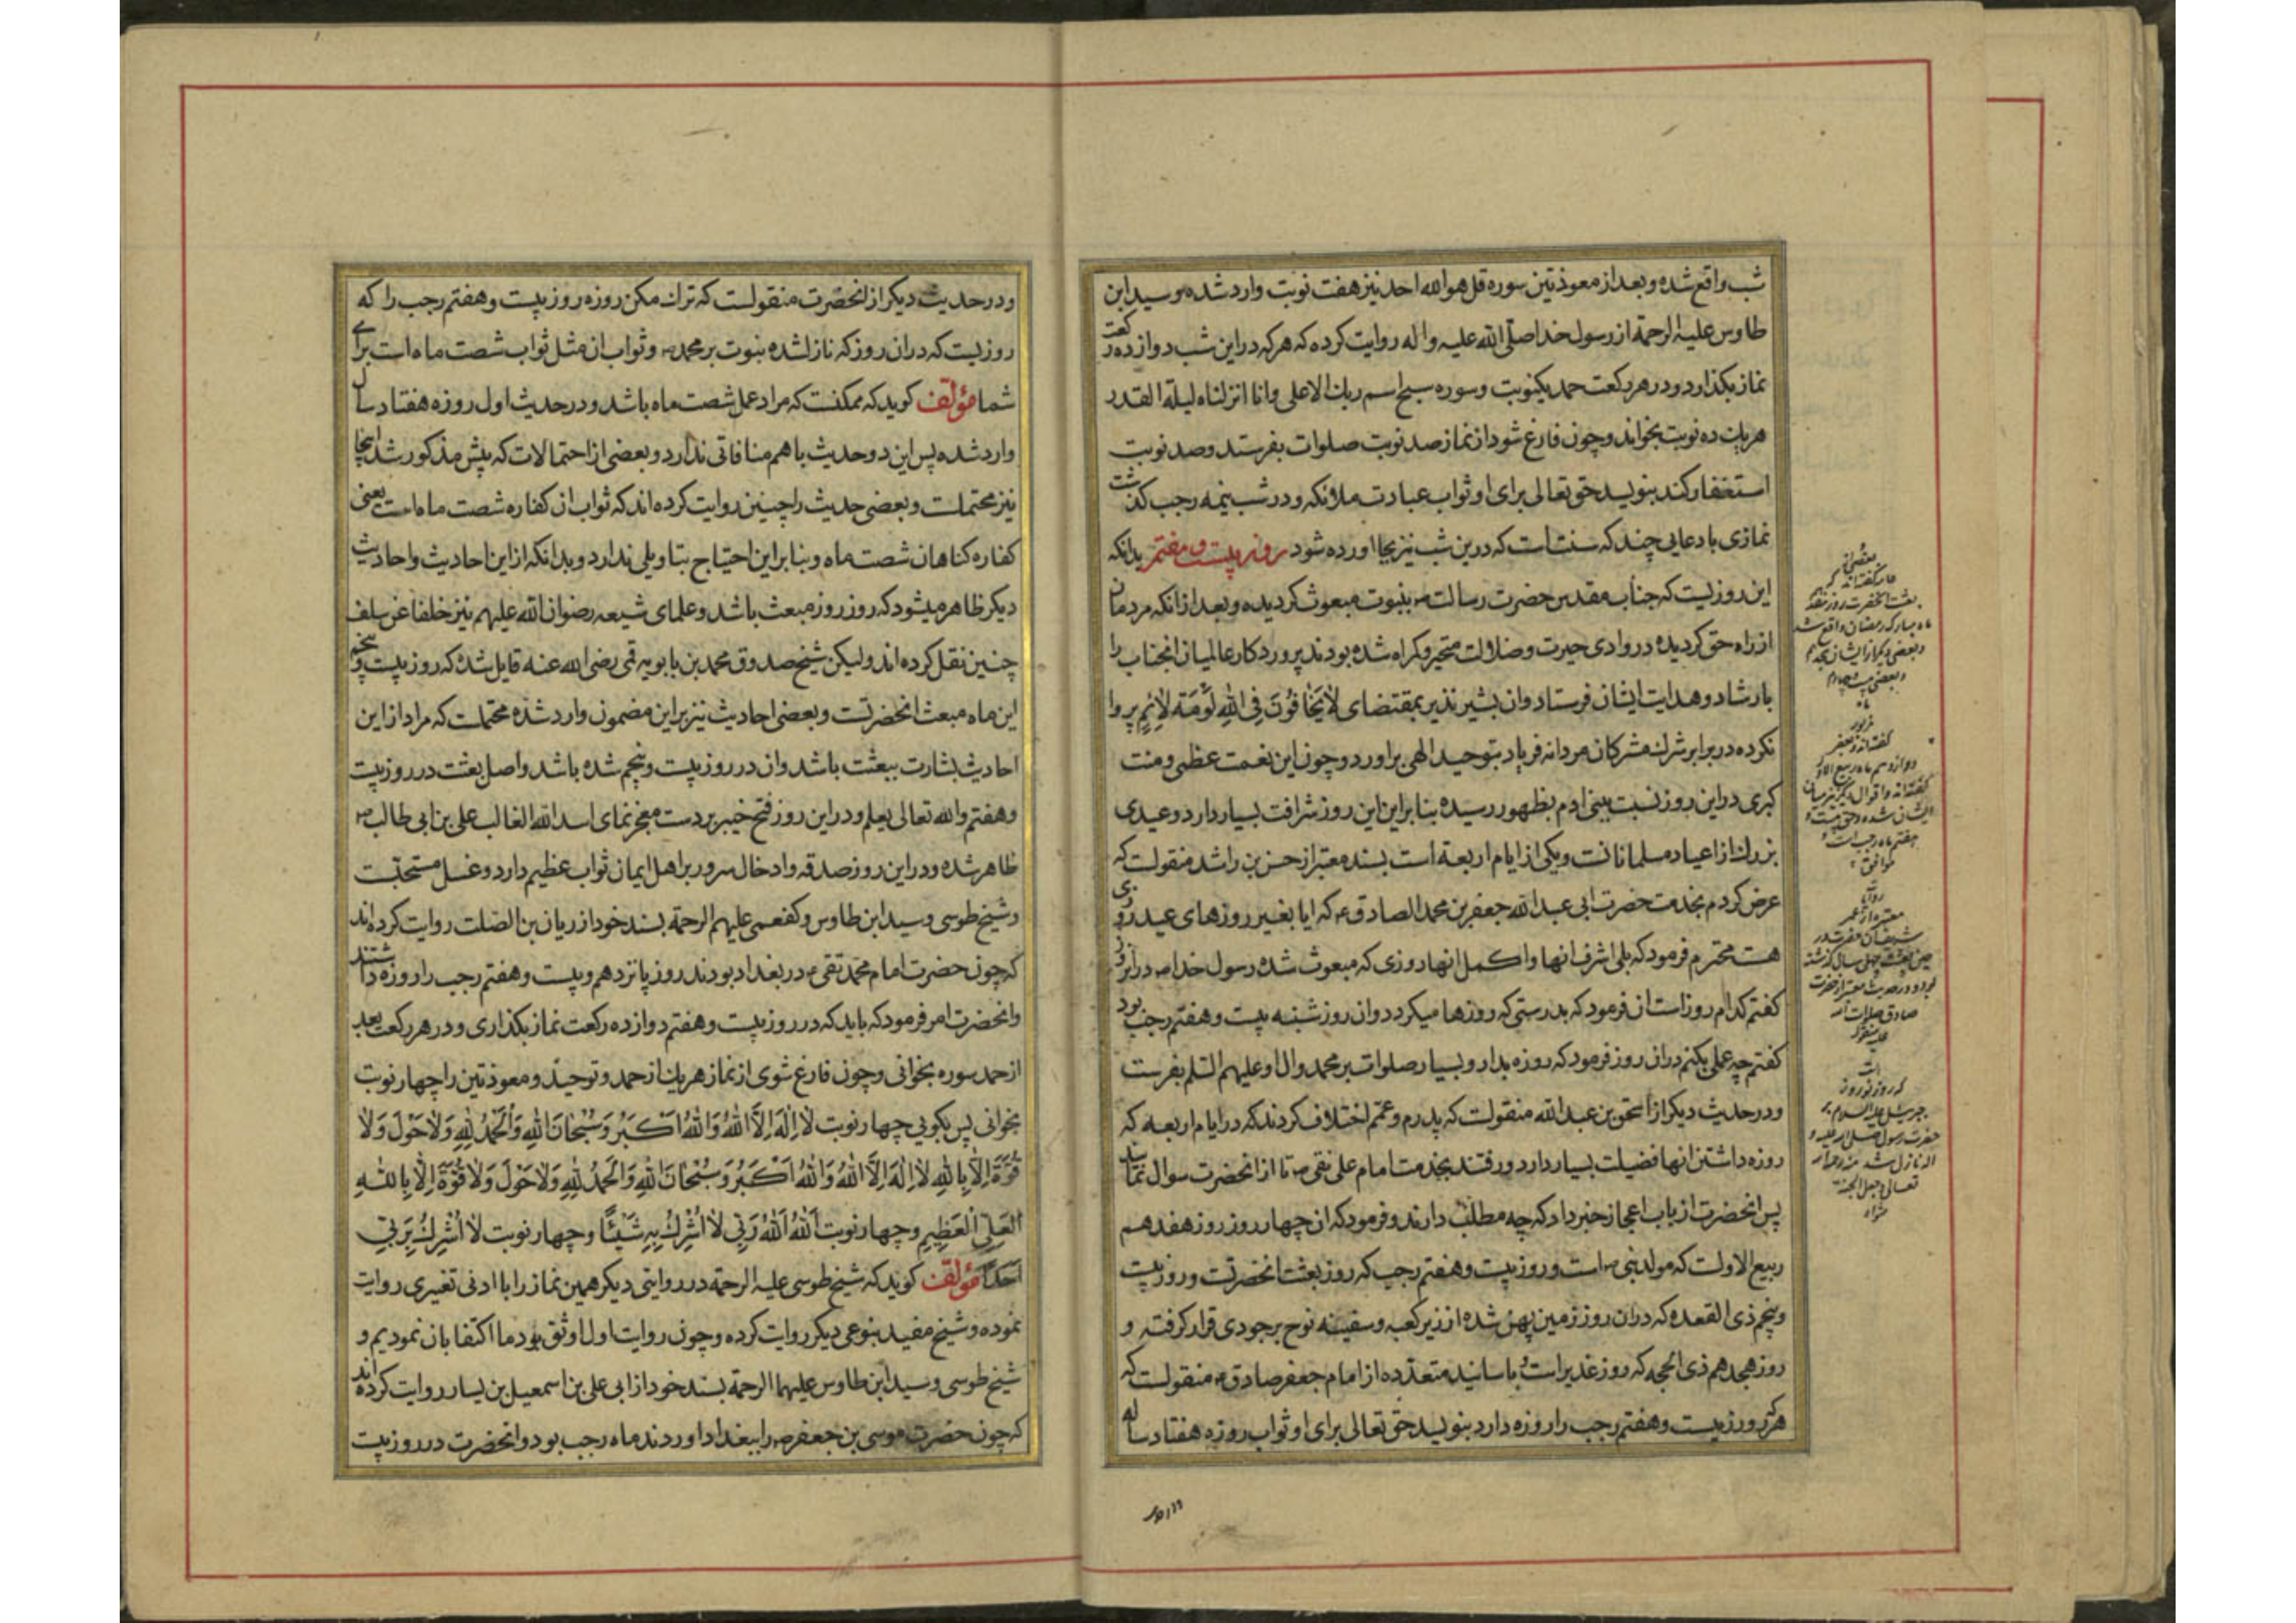 شب واقع شده و بعد از معوذتین سوره قل هو الله احد نیز هفت نوبت وارد شده و سید ابن
طاوس علیه الرحمة از رسول خدا صلی الله علیه و اله روایت کرده که هر که در این شب دوازده رکعت
نماز بکذارد و در هر رکعت حمد یکنوبت و سوره سبح اسم ربك الاعلی و انا انزلناه لیلة القدر
هر یك ده نوبت بخواند و چون فارغ شود از نماز صد نوبت صلوات بفرستد و صد نوبت
استغفار کند بنویسد حق تعالی برای او ثواب عبادت ملائکه و در شب نیمه رجب کذشت
نمازی با دعایی چند که سنت است که درین شب نیز بجا اورده شود روز بیست و هفتم بدانکه
این روزیست که جناب مقدس حضرت رسالت ص بنبوت مبعوث کردیده و بعد از انکه مردمان
از راه حق کردیده در وادی حیرت و ضلالت متحیر و کمراه شده بودند پروردکار عالمیان انجناب را
بارشاد و هدایت ایشان فرستاد و ان بشیر نذیر بمقتضای لا یَخافُونَ فِی اللهِ لَوْمَةَ لائِمٍ پروا
نکرده در برابر شرك مشرکان مردانه فریاد بتوحید الهی براورد و چون این نعمت عظمی و منت
کبری در این روز نسبت ببنی ادم بظهور رسیده بنابراین این روز شرافت بسیار دارد و عیدی
بزرك از اعیاد مسلمانانست و یکی از ایام اربعه است بسند معتبر از حسن بن راشد منقولست که
عرض کردم بخدمت حضرت ابی عبد الله جعفر بن محمد الصادق ع که ایا بغیر روزهای عید روزی
هست محترم فرمود که بلی اشرف انها و اکمل انها روزی که مبعوث شده رسول خدا ص در انروز
کفتم کدام روز است ان فرمود که بدرستی که روزها میکردد و ان روز شنبه بیست و هفتم رجب بود
کفتم چه عملی بکنم در ان روز فرمود که روزه بدار و بسیار صلوات بر محمد و ال او علیهم السلم بفرست
و در حدیث دیکر از اسحق بن عبد الله منقولست که پدرم و عمم اختلاف کردند که در ایام اربعه که
روزه داشتن انها فضیلت بسیار دارد و رفتند بخدمت امام علی نقی ع تا از انحضرت سوال نمایند
پس انحضرت از باب اعجاز خبر داد که چه مطلب دارند و فرمود که ان چهار روز روز هفدهم
ربیع الاولست که مولد نبی ص است و روز بیست و هفتم رجب که روز بعثت انحضرتست و روز بیست
و پنجم ذی القعده که در ان روز زمین پهن شده از زیر کعبه و سفینه نوح بر جودی قرار کرفته و
روز هجدهم ذی الحجه که روز غدیر است و باسانید متعدده از امام جعفر صادق ع منقولست که
هر که روز بیست و هفتم رجب را روزه دارد بنویسد حق تعالی برای او ثواب روزه هفتاد ساله
بعثت انحضرت روز هفدهم
ماه مبارك رمضان واقع شد
و بعضی دیکر از ایشان هجدهم
و بعضی بیست و چهارم
دوازدهم ماه ربیع الاول
هفتم ماه رجب است و
موافق
چهل سال کذشته
بود و در حدیث معتبر از حضرت
صادق صلوات الله
علیه منقول
است
که روز نوروز
جبرئیل علیه السلام بر
حضرت رسول صلی الله علیه و
اله نازل شد
تعالی و جعل الجنة
مثواه
و در حدیث دیکر از انحضرت منقولست که ترك مکن روزه روز بیست و هفتم رجب را که
روزیست که در ان روز که نازل شده نبوت بر محمد ص و ثواب ان مثل ثواب شصت ماه است برای
شما مؤلف کوید که ممکنست که مراد عمل شصت ماه باشد و در حدیث اول روزه هفتاد سال
وارد شده پس این دو حدیث با هم منافاتی ندارد و بعضی از احتمالات که پیش مذکور شد اینجا
نیز محتملست و بعضی حدیث را چنین روایت کرده اند که ثواب ان کفاره شصت ماه است یعنی
کفاره کناهان شصت ماه و بنا براین احتیاج بتاویلی ندارد و بدانکه از این احادیث و احادیث
دیکر ظاهر میشود که روز روز مبعث باشد و علمای شیعه رضوان الله علیهم نیز خلفا عن سلف
چنین نقل کرده اند و لیکن شیخ صدوق محمد بن بابویه قمی رضی الله عنه قایل شده که روز بیست و پنجم
این ماه مبعث انحضرتست و بعضی احادیث نیز براین مضمون وارد شده محتملست که مراد از این
احادیث بشارت ببعثت باشد و ان در روز بیست و پنجم شده باشد و اصل بعثت در روز بیست
و هفتم و الله تعالی یعلم و در این روز فتح خیبر بر دست معجز نمای اسد الله الغالب علی بن ابی طالب ع
ظاهر شده و در این روز صدقه و ادخال سرور بر اهل ایمان ثواب عظیم دارد و غسل مستحبست
و شیخ طوسی و سید ابن طاوس و کفعمی علیهم الرحمة بسند خود از ریان بن الصلت روایت کرده اند
که چون حضرت امام محمد تقی ع در بغداد بودند روز پانزدهم و بیست و هفتم رجب را روزه داشتند
و انحضرت امر فرمود که باید که در روز بیست و هفتم دوازده رکعت نماز بکذاری و در هر رکعت بعد
از حمد سوره بخوانی و چون فارغ شوی از نماز هر یك از حمد و توحید و معوذتین را چهار نوبت
بخوانی پس بکویی چهار نوبت لا اِلهَ اِلَّا اللهُ وَاللهُ اَکْبَرُ وَسُبْحانَ اللهِ وَالْحَمْدُ لِلّهِ وَلا حَوْلَ وَلا
قُوَّةَ اِلّا بِاللهِ لا اِلهَ اِلَّا اللهُ وَاللهُ اَکْبَرُ وَسُبْحانَ اللهِ وَالْحَمْدُ لِلّهِ وَلا حَوْلَ وَلا قُوَّةَ اِلّا بِاللهِ
الْعَلِیِّ الْعَظِیمِ و چهار نوبت اَللهُ اَللهُ رَبّی لا اُشْرِكُ بِهِ شَیْئًا و چهار نوبت لا اُشْرِكُ بِرَبّی
اَحَدًا مؤلف کوید که شیخ طوسی علیه الرحمة در روایتی دیکر همین نماز را با ادنی تغییری روایت
نموده و شیخ مفید بنوعی دیکر روایت کرده و چون روایت اول اوثق بود ما اکتفا بان نمودیم و
شیخ طوسی و سید ابن طاوس علیهما الرحمة بسند خود از ابی علی بن اسمعیل بن یسار روایت کرده اند
که چون حضرت موسی بن جعفر ع را ببغداد اوردند ماه رجب بود و انحضرت در روز بیست